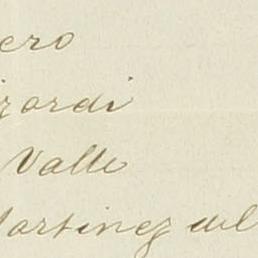 ero
zordi
Valle
Martinez del